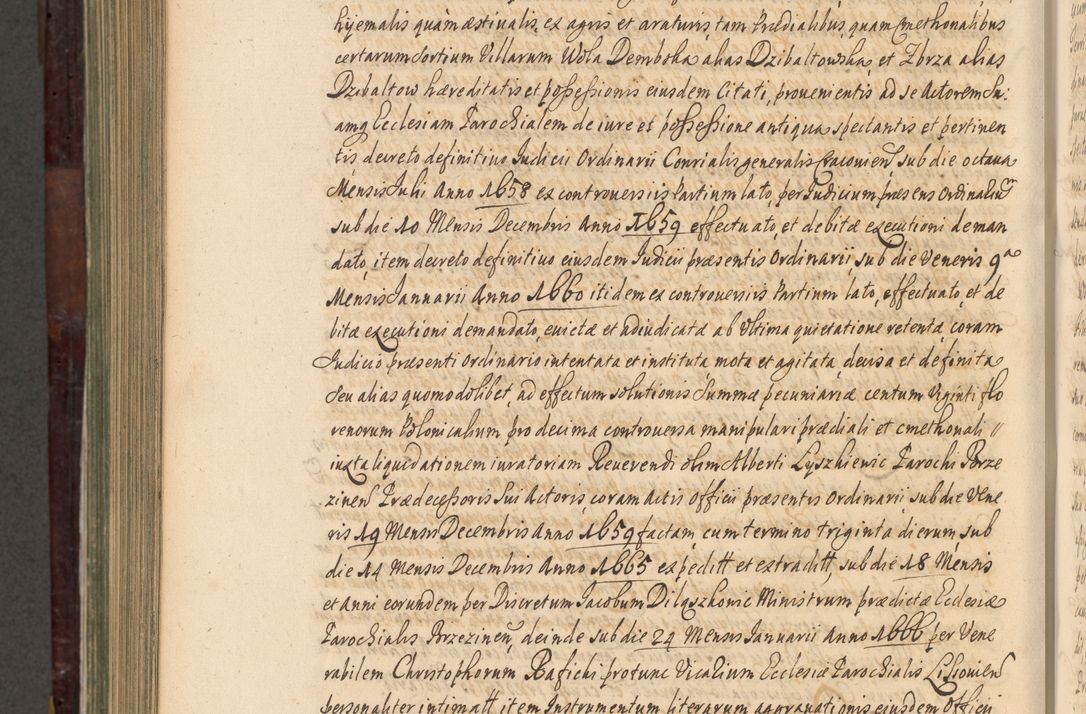 hyemalis quàm æstiualis, ex agris et araturis, tam Prædialibus, quam Cmethonalibus
certarum Sortium Villarum Wola Dembska alias Dzibaltowska, et Zbrza alias
Dzibaltow hæreditatis et possessionis eiusdem Citati, prouenientis ad se Actorem Su:
amq Ecclesiam Parochialem de iure et possessione antiqua spectantis et pertinen
tis decreto definitiuo Iudicii Ordinarii Consrialis generalis Cracouien, sub die octaua
Mensis Iulii Anno 1658 ex controuersiis Partium lato, per Iudicium præsens Ordinarium
sub die 10 Mensis Decembris Anno 1659 effectuato, et debitæ executioni deman
dato, item decreto definitiuo eiusdem Iudicii præsentis Ordinarii, sub die Veneris 9a
Mensis Ianuarii Anno 1660 itidem ex controuersiis Partium lato, effectuato, et de
bitæ executioni demandato, euictæ et adiudicatæ ab Vltima quietatione retentæ, coram
Iudicio præsenti Ordinario intentata et instituta mota et agitata, decisa et definita
Seu alias quomodolibet, ad effectum solutionis Summæ pecuniariæ centum Viginti flo
renorum Polonicalium pro decima controuersa manipulari prædiali et cmethonali //
iuxta liquidationem iuratoriam Reuerendi olim Alberti Lyszkiewic Parochi Brze
zinen Prædecessoris Sui Actoris, coram Actis Officii præsentis Ordinarii, sub die Vene
ris 19 Mensis Decembris Anno 1659 factam, cum termino triginta dierum, sub
die 14 Mensis Decembris Anno 1665 expeditt et extraditt, sub die 18 Mensis
et Anni eorundem per Discretum Iacobum Dilqszkowic Ministrum prædictæ Ecclesiæ
Parochialis Brzezinen, deinde sub die 24 Mensis Ianuarii Anno 1666 per Vene
rabilem Christophorum Bafichi protunc Vicarium Ecclesiæ Parochialis Lissouien
personaliter intimatt, item Instrumentum literarum aggrauationis eiusdem Officii